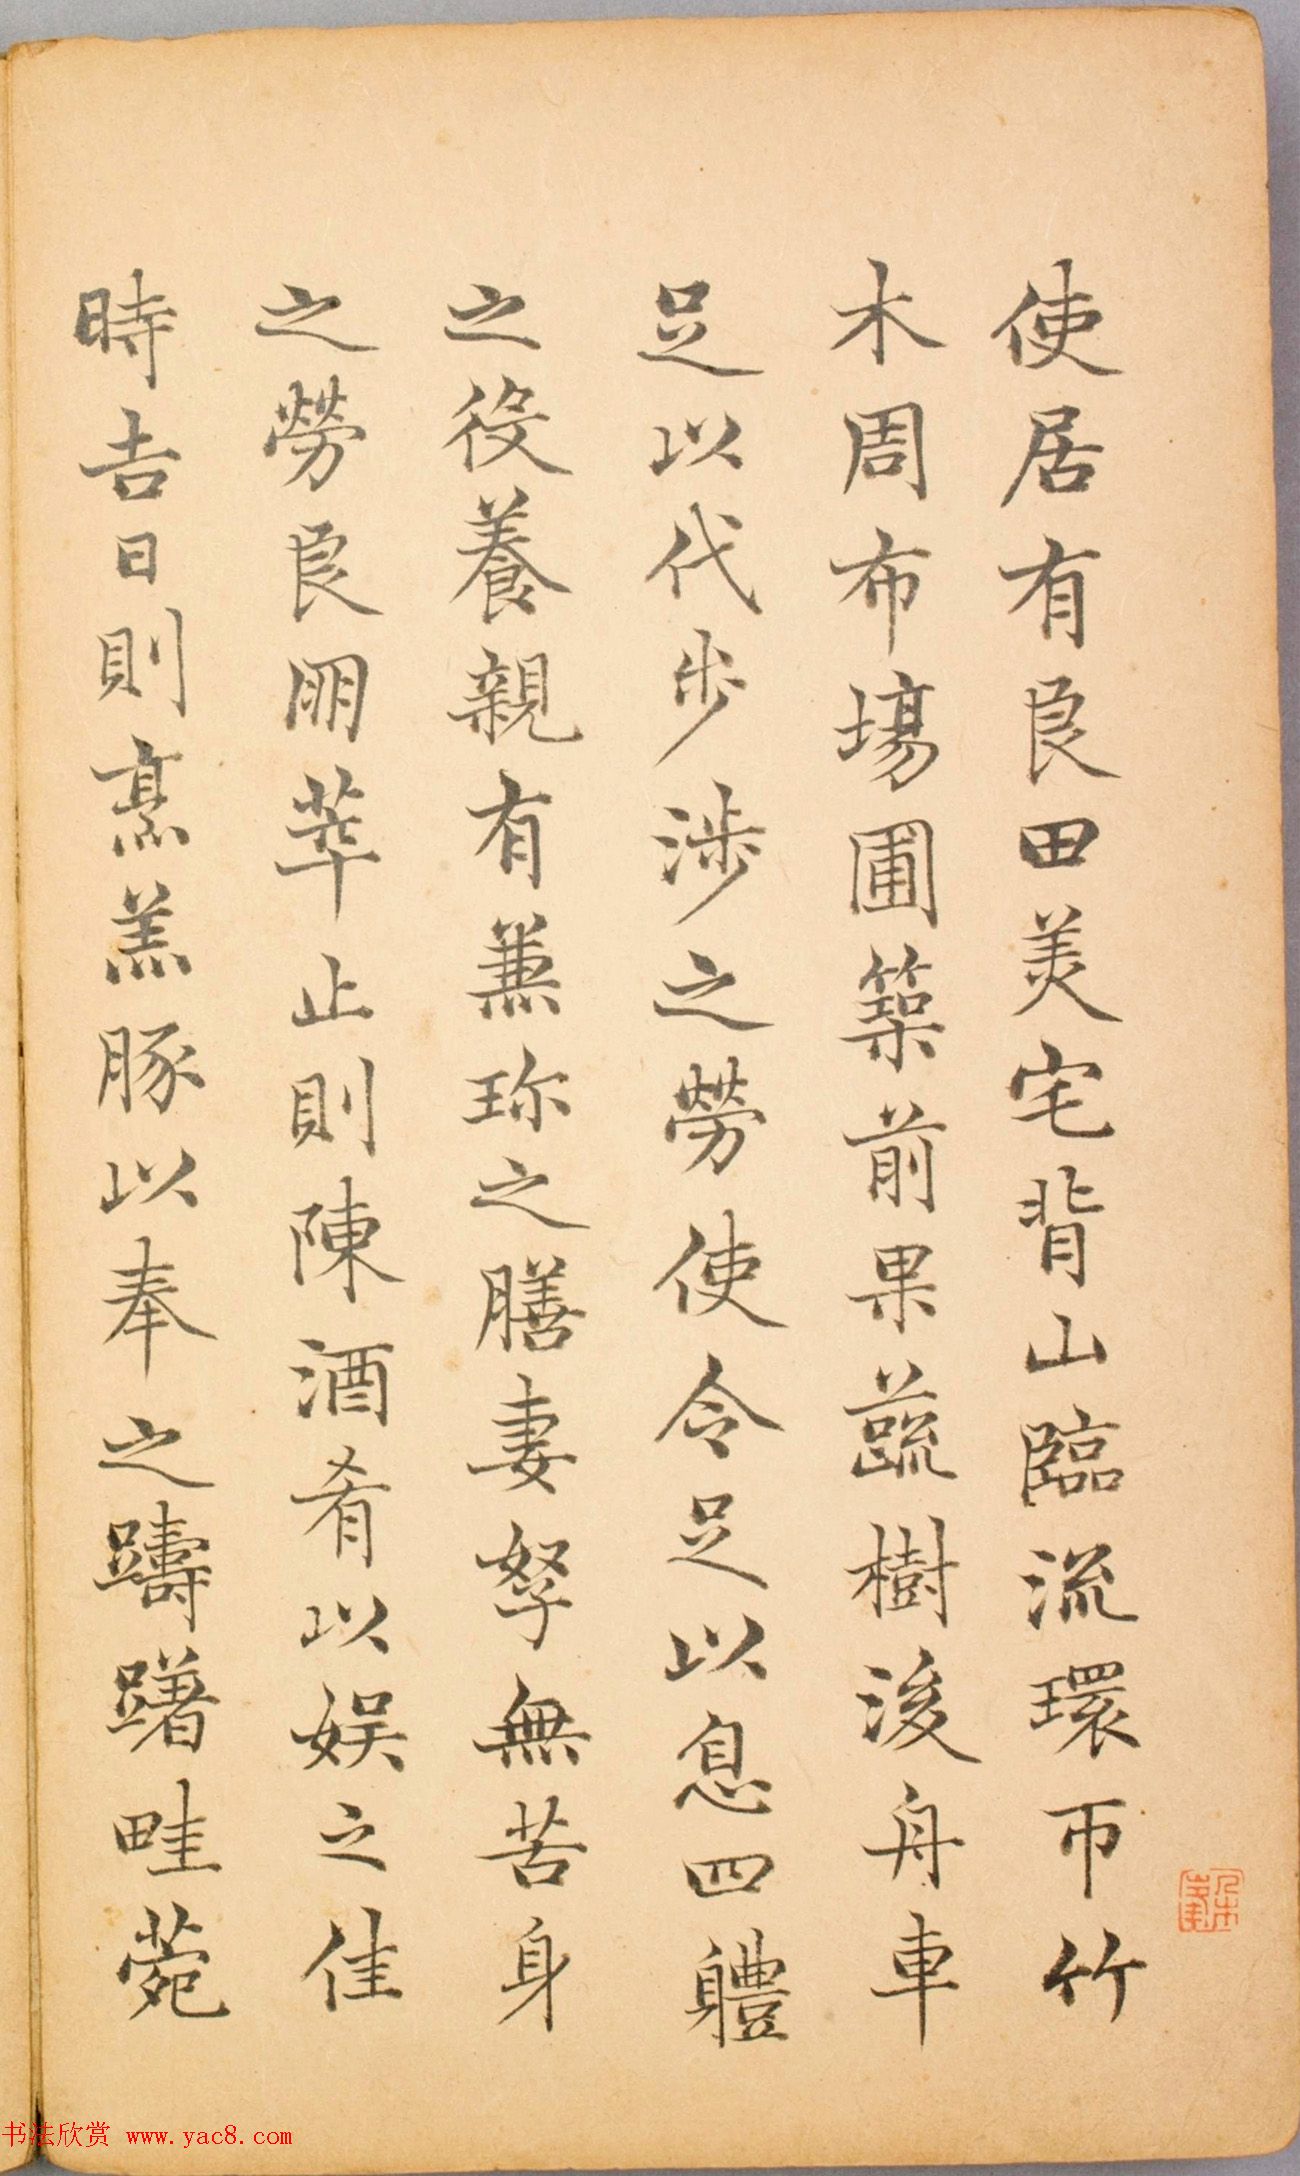 使居有良田美宅背山臨流環帀竹
木周布塲圃築前果蔬樹後舟車
足以代步涉之勞使令足以息四體
之役養親有兼珍之膳妻孥無苦身
之勞良朋萃止則陳酒肴以娛之佳
時吉日則烹羔豚以奉之躊躇畦菀
书法欣赏 www.yac8.com